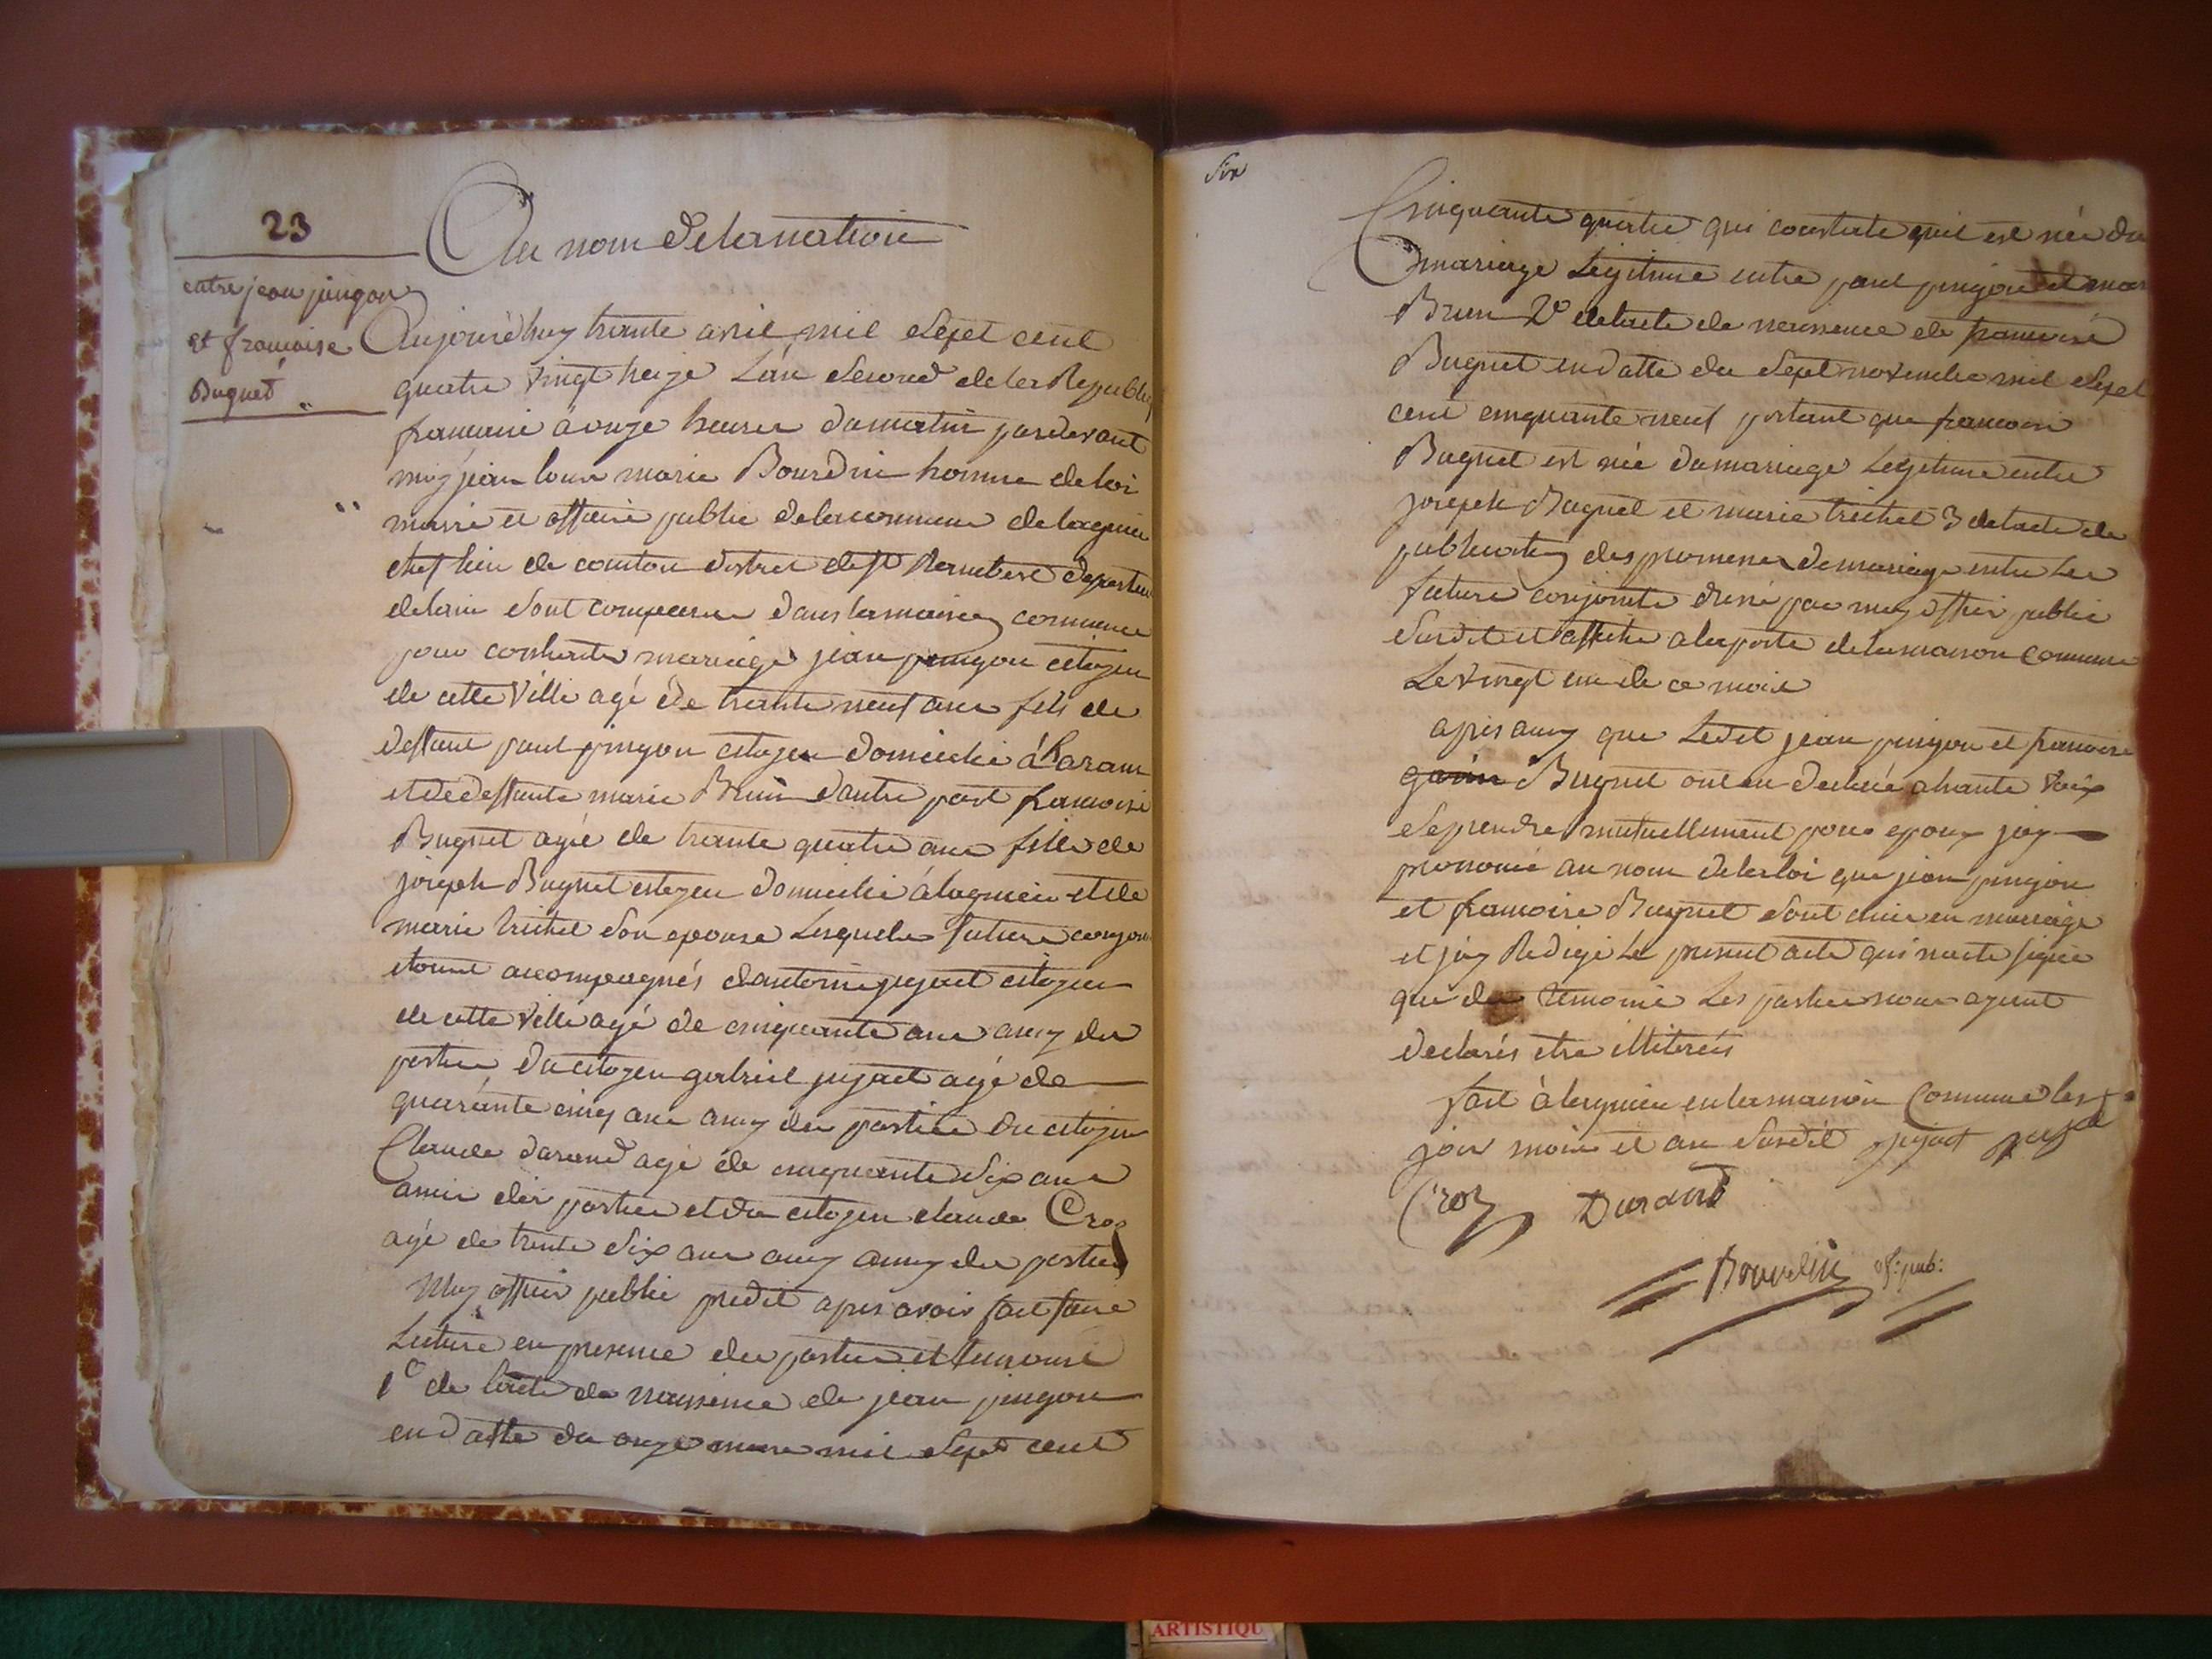 23
Au nom de la nation
entre jean pingon
et francoise
Buguet
Aujourdhuy trante avril mil sept cent
quatre vingt treize L'an second de la Republiq
francaise a onze heures du matin pardevant
moy jean louis marie homme de loi
maire et officier public de la commune de lagnieu
chef lieu de canton district de st Rambert departem
de lain sont comparus dans la maison commune
pour contracter mariage jean pingon citoyen
de cette ville agé de trante neuf ans fils de
deffunt paul pingon citoyen domicilié à
et de deffunte marie Brun dautre part francoise
Buguet agée de trante quatre ans fille de
joseph Buguet citoyen domicilié à lagnieu et de
marie trichet son epouse Lesquels futurs conjoin
etoient accompagnés dantoine jujat citoyen
de cette ville agé de cinquante ans amy des
parties du citoyen gabriel jujat agé de
quarante cinq ans amy des parties du citoyen
Claude durand agé de cinquante six ans
amis des parties et du citoyen claude Croz
agé de trente six ans aussy amy des parties
Moy officier public predit apres avoir fait faire
Lecture en presence des parties et temoins
1° de lacte de naissance de jean pingon
en datte du onze mars mil sept cent
Six
Cinquante quatre qui constate quil est née du
mariage Legitime entre paul pingon et mar
Brun 2° de lacte de naissance de francoise
Buguet en datte du sept novembre mil sept
cent cinquante neuf portant que francoise
Buguet est née du mariage Legitime entre
joseph Buguet et marie trichet 3 de lacte de
publication des promesses de mariage entre Les
futurs conjoints dressé par moy officier public
susdit et affiché a la porte de la maison commune
Le vingt un de ce mois
apres aussy que Ledit jean pingon et francoise
Buguet ont eu declaré a haute voix
se prendre mutuellement pour epoux jay
prononcé au nom de la loi que jean pingon
et francoise Buguet sont unis en mariage
et jay Redigé Le present acte qui n'a été signé
que des temoins Les parties nous ayant
declarés etre illiterés
fait à lagnieu en la maison Commune les
jour mois et an susdit jujat jujat
Croz Durand
of: pub:
ARTISTIQU